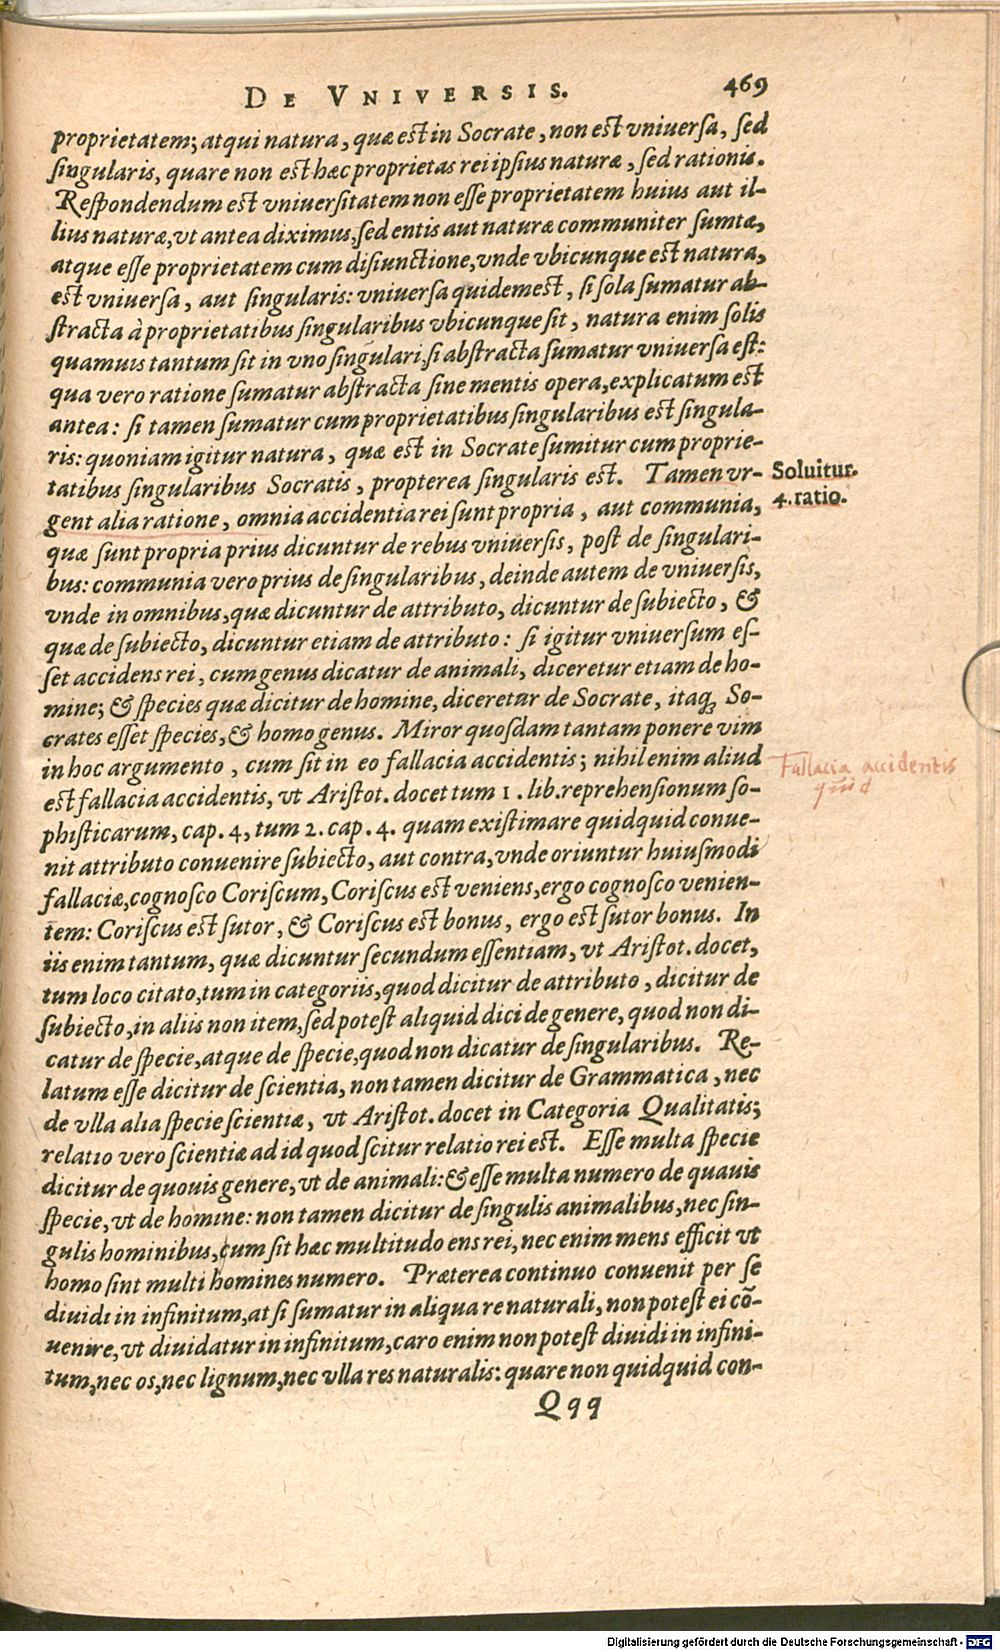 DE VNIVERSIS. 469
proprietatem; atqui natura, quæ est in Socrate, non est vniuersa, sed
singularis, quare non est hæc proprietas rei ipsius naturæ, sed rationis.
Respondendum est vniuersitatem non esse proprietatem huius aut il-
lius naturæ, vt antea diximus, sed entis aut naturæ communiter sumtæ,
atque esse proprietatem cum disiunctione, vnde vbicunque est natura,
est vniuersa, aut singularis: vniuersa quidem est, si sola sumatur ab-
stracta à proprietatibus singularibus vbicunque sit, natura enim solis
quamuis tantum sit in vno singulari, si abstracta sumatur vniuersa est:
qua vero ratione sumatur abstracta sine mentis opera, explicatum est
antea: si tamen sumatur cum proprietatibus singularibus est singula-
ris: quoniam igitur natura, quæ est in Socrate sumitur cum proprie-
tatibus singularibus Socratis, propterea singularis est. Tamen vr-
Soluitur.
4. ratio.
gent alia ratione, omnia accidentia rei sunt propria, aut communia,
quæ sunt propria prius dicuntur de rebus vniuersis, post de singulari-
bus: communia vero prius de singularibus, deinde autem de vniuersis,
vnde in omnibus, quæ dicuntur de attributo, dicuntur de subiecto, &
quæ de subiecto, dicuntur etiam de attributo: si igitur vniuersum es-
set accidens rei, cum genus dicatur de animali, diceretur etiam de ho-
mine; & species quæ dicitur de homine, diceretur de Socrate, itaq; So-
crates esset species, & homo genus. Miror quosdam tantam ponere vim
in hoc argumento, cum sit in eo fallacia accidentis; nihil enim aliud
Fallacia accidentis
quid
est fallacia accidentis, vt Aristot. docet tum 1. lib. reprehensionum so-
phisticarum, cap. 4, tum 2. cap. 4. quam existimare quidquid conue-
nit attributo conuenire subiecto, aut contra, vnde oriuntur huiusmodi
fallaciæ, cognosco Coriscum, Coriscus est veniens, ergo cognosco venien-
tem: Coriscus est sutor, & Coriscus est bonus, ergo est sutor bonus. In
iis enim tantum, quæ dicuntur secundum essentiam, vt Aristot. docet,
tum loco citato, tum in categoriis, quod dicitur de attributo, dicitur de
subiecto, in aliis non item, sed potest aliquid dici de genere, quod non di-
catur de specie, atque de specie, quod non dicatur de singularibus. Re-
latum esse dicitur de scientia, non tamen dicitur de Grammatica, nec
de vlla alia specie scientiæ, vt Aristot. docet in Categoria Qualitatis;
relatio vero scientiæ ad id quod scitur relatio rei est. Esse multa specie
dicitur de quouis genere, vt de animali: & esse multa numero de quauis
specie, vt de homine: non tamen dicitur de singulis animalibus, nec sin-
gulis hominibus, cum sit hæc multitudo ens rei, nec enim mens efficit vt
homo sint multi homines numero. Præterea continuo conuenit per se
diuidi in infinitum, at si sumatur in aliqua re naturali, non potest ei cõ-
uenire, vt diuidatur in infinitum, caro enim non potest diuidi in infini-
tum, nec os, nec lignum, nec vlla res naturalis: quare non quidquid con-
Qqq
Digitalisierung gefördert durch die Deutsche Forschungsgemeinschaft - DFG